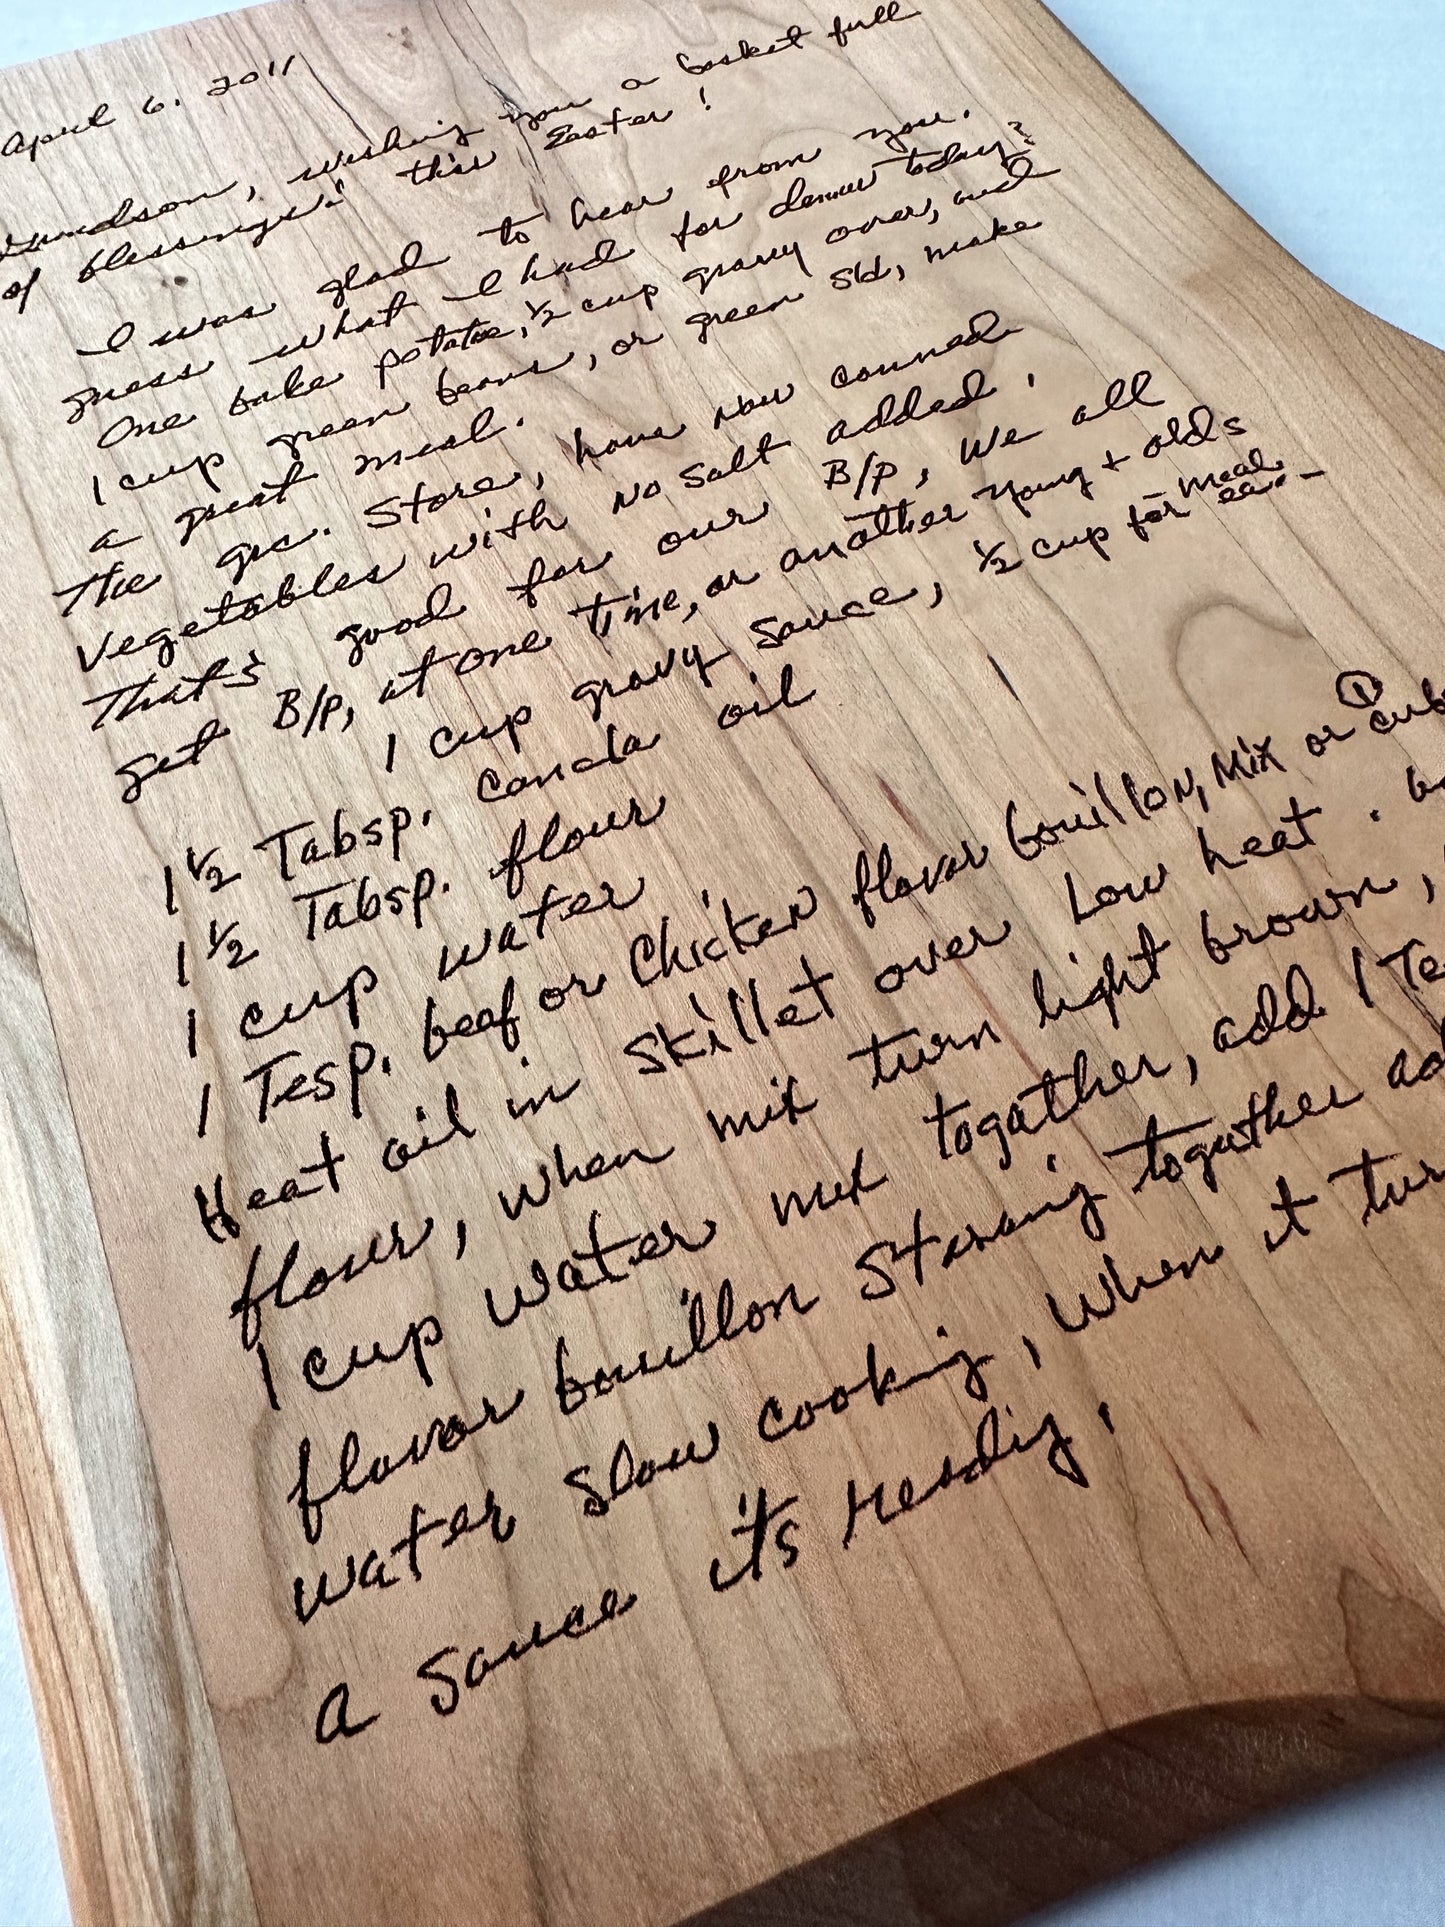 April 6. 2011
Grandson, wishing you a basket full
of blessings! this Easter!
I was glad to hear from you.
guess what I had for dinner today?
One bake potatoe, 1/2 cup gravy over, and
1 cup green beans, or green sld, make
a great meal.
The gro. Store, have now canned
Vegetables with No Salt added,
That's good for our B/P, We all
get B/P, at one time, or another young + olds
1 cup gravy sauce, 1/2 cup for meal
1 1/2 Tabsp. Canola oil
1 1/2 Tabsp. flour
1 cup water
1 Tesp. beef or Chicken flavor bouillon, Mix or ① cub
Heat oil in Skillet over Low heat.
flour, when mix turn light brown,
1 cup water mix togather, add 1 Te
flavor bouillon Stiring togather ad
water slow cooking, When it tur
a sauce it's ready,